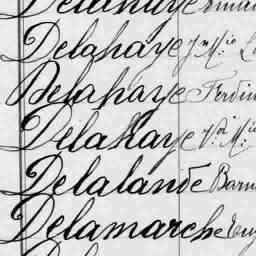 Delahaye
Delahaye Jn Mie
Delahaye Ferdin
Delahaye Vor Mie
Delalande Barn
Delamarche Eug